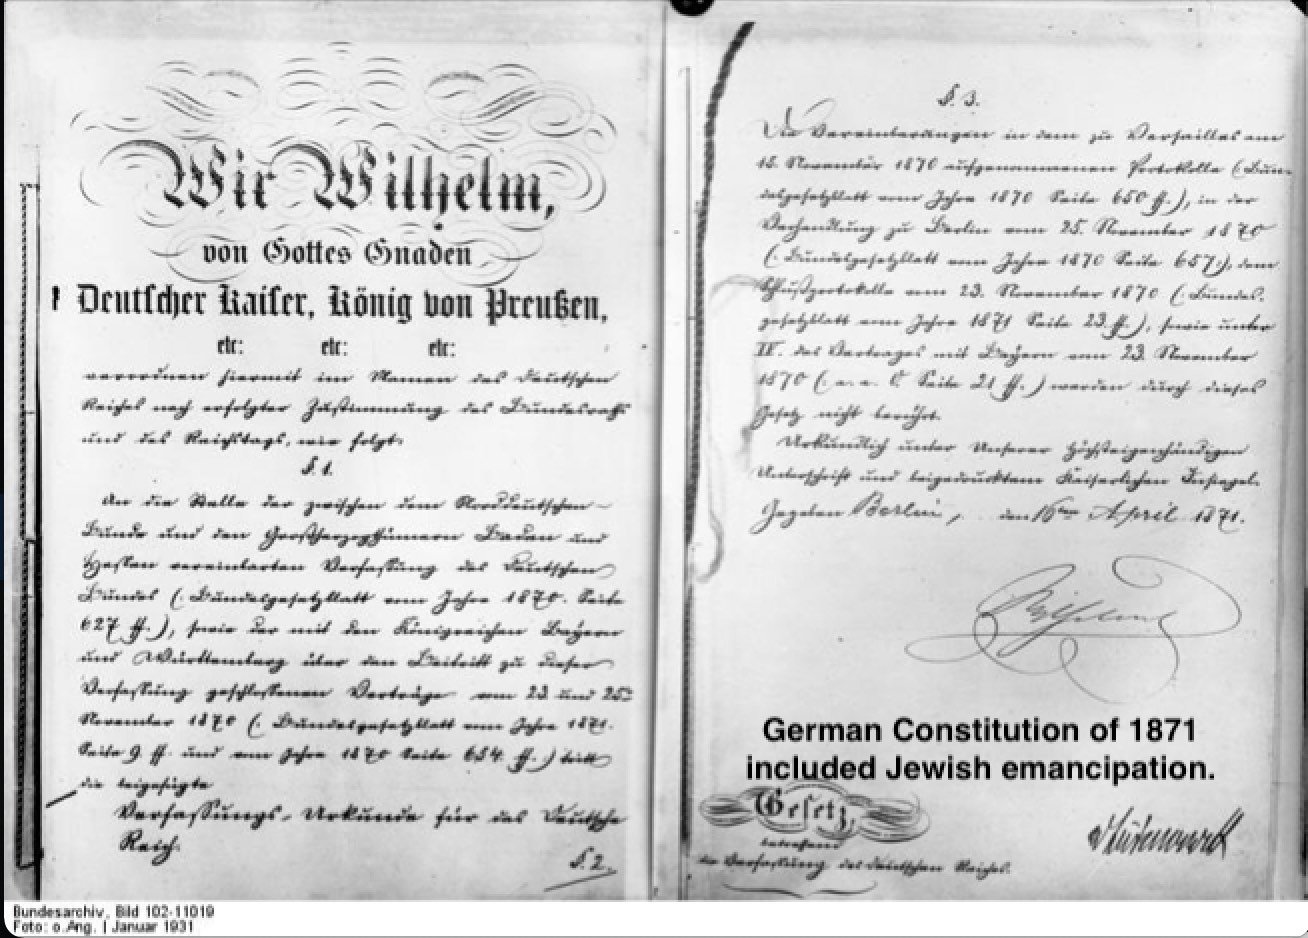 Wir Wilhelm,
von Gottes Gnaden
Deutscher Kaiser, König von Preußen,
etc: etc: etc:
verordnen hiermit im Namen des Deutschen
Reiches nach erfolgter Zustimmung des Bundesraths
und des Reichstags, wie folgt:
§. 1.
An die Stelle der zwischen dem Norddeutschen
Bunde und den Großherzogthümern Baden und
Hessen vereinbarten Verfassung des Deutschen
Bundes (Bundesgesetzblatt vom Jahre 1870. Seite
627 ff.), sowie der mit den Königreichen Bayern
und Württemberg über den Beitritt zu dieser
Verfassung geschlossenen Verträge vom 23 und 25
November 1870 (Bundesgesetzblatt vom Jahre 1871.
Seite 9 ff. und vom Jahre 1870 Seite 654 ff.) tritt
die beigefügte
Verfassungs-Urkunde für das Deutsche
Reich.
§. 2.
§. 3.
Die Vereinbarungen in dem zu Versailles am
15. November 1870 aufgenommenen Protokolle (Bun-
desgesetzblatt vom Jahre 1870 Seite 650 ff.), in der
Verhandlung zu Berlin vom 25. November 1870
(Bundesgesetzblatt vom Jahre 1870 Seite 657), dem
Schlußprotokolle vom 23. November 1870 (Bundes-
gesetzblatt vom Jahre 1871 Seite 23 ff.), sowie unter
IV. des Vertrages mit Bayern vom 23. November
1870 (a. a. O. Seite 21 ff.) werden durch dieses
Gesetz nicht berührt.
Urkundlich unter Unserer Höchsteigenhändigen
Unterschrift und beigedrucktem Kaiserlichen Insiegel.
Gegeben Berlin, den 16ten April 1871.
Wilhelm
German Constitution of 1871
included Jewish emancipation.
Gesetz,
betreffend
die Verfassung des Deutschen Reiches.
v Bismarck
Bundesarchiv, Bild 102-11019
Foto: o.Ang. | Januar 1931